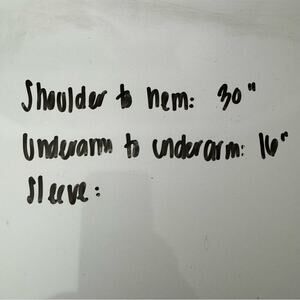 Shoulder to hem: 30"
Underarm to underarm: 16"
Sleeve: